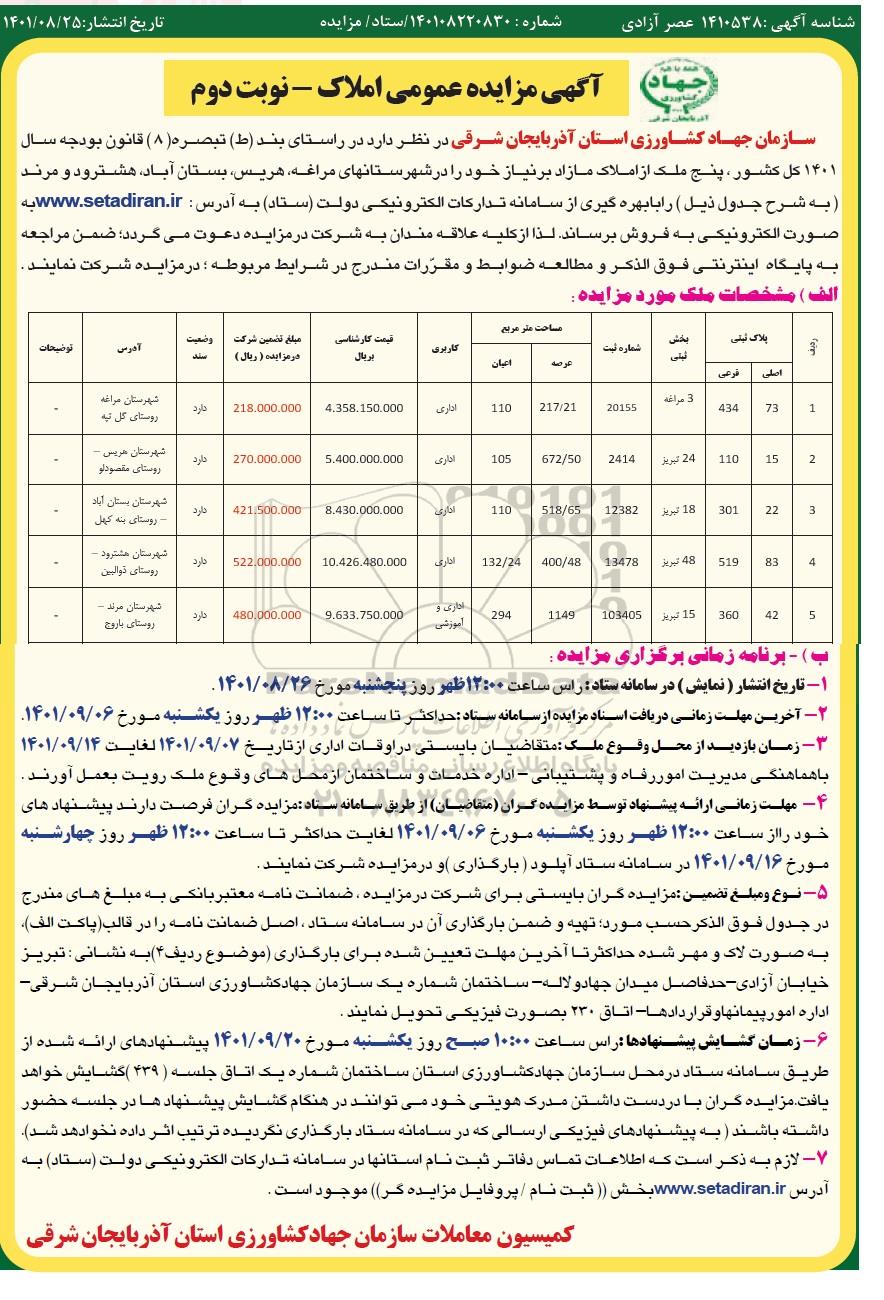 شناسه آگهی :۱۴۱۰۵۳۸ عصر آزادی
شماره : ۱۴۰۱۰۸۲۲۰۸۳۰/ستاد/ مزایده
تاریخ انتشار:۱۴۰۱/۰۸/۲۵
همه با هم
جهاد
کشاورزی
آذربایجان شرقی
آگهی مزایده عمومی املاک – نوبت دوم
سازمان جهاد کشاورزی استان آذربایجان شرقی در نظر دارد در راستای بند (ط) تبصره( ۸ ) قانون بودجه سال
۱۴۰۱ کل کشور ، پنج ملک ازاملاک مازاد برنیاز خود را درشهرستانهای مراغه، هریس، بستان آباد، هشترود و مرند
( به شرح جدول ذیل ) رابابهره گیری از سامانه تدارکات الکترونیکی دولت (ستاد) به آدرس : www.setadiran.ir به
صورت الکترونیکی به فروش برساند. لذا ازکلیه علاقه مندان به شرکت درمزایده دعوت می گردد؛ ضمن مراجعه
به پایگاه اینترنتی فوق الذکر و مطالعه ضوابط و مقرّرات مندرج در شرایط مربوطه ؛ درمزایده شرکت نمایند .
الف ) مشخصات ملک مورد مزایده :
ردیف | پلاک ثبتی | بخش ثبتی | شماره ثبت | مساحت متر مربع | کاربری | قیمت کارشناسی بریال | مبلغ تضمین شرکت درمزایده ( ریال ) | وضعیت سند | آدرس | توضیحات
اصلی | فرعی | عرصه | اعیان
1 | 73 | 434 | 3 مراغه | 20155 | 217/21 | 110 | اداری | 4.358.150.000 | 218.000.000 | دارد | شهرستان مراغه روستای گل تپه | -
2 | 15 | 110 | 24 تبریز | 2414 | 672/50 | 105 | اداری | 5.400.000.000 | 270.000.000 | دارد | شهرستان هریس – روستای مقصودلو | -
3 | 22 | 301 | 18 تبریز | 12382 | 518/65 | 110 | اداری | 8.430.000.000 | 421.500.000 | دارد | شهرستان بستان آباد – روستای بنه کهل | -
4 | 83 | 519 | 48 تبریز | 13478 | 400/48 | 132/24 | اداری | 10.426.480.000 | 522.000.000 | دارد | شهرستان هشترود – روستای ذوالبین | -
5 | 42 | 360 | 15 تبریز | 103405 | 1149 | 294 | اداری و آموزشی | 9.633.750.000 | 480.000.000 | دارد | شهرستان مرند – روستای باروج | -
ب ) - برنامه زمانی برگزاری مزایده :
۱– تاریخ انتشار ( نمایش ) در سامانه ستاد : راس ساعت ۱۲:۰۰ظهر روز پنجشنبه مورخ ۱۴۰۱/۰۸/۲۶ .
۲– آخرین مهلت زمانی دریافت اسناد مزایده ازسامانه ستاد :حداکثر تا ساعت ۱۲:۰۰ ظهر روز یکشنبه مورخ ۱۴۰۱/۰۹/۰۶.
۳– زمان بازدید از محل وقوع ملک :متقاضیان بایستی دراوقات اداری ازتاریخ ۱۴۰۱/۰۹/۰۷ لغایت ۱۴۰۱/۰۹/۱۴
باهماهنگی مدیریت اموررفاه و پشتیبانی – اداره خدمات و ساختمان ازمحل های وقوع ملک رویت بعمل آورند .
۴– مهلت زمانی ارائه پیشنهاد توسط مزایده گران (متقاضیان) از طریق سامانه ستاد :مزایده گران فرصت دارند پیشنهاد های
خود رااز ساعت ۱۲:۰۰ ظهر روز یکشنبه مورخ ۱۴۰۱/۰۹/۰۶ لغایت حداکثر تا ساعت ۱۲:۰۰ ظهر روز چهارشنبه
مورخ ۱۴۰۱/۰۹/۱۶ در سامانه ستاد آپلود ( بارگذاری )و درمزایده شرکت نمایند .
۵– نوع ومبلغ تضمین :مزایده گران بایستی برای شرکت درمزایده ، ضمانت نامه معتبربانکی به مبلغ های مندرج
در جدول فوق الذکرحسب مورد؛ تهیه و ضمن بارگذاری آن در سامانه ستاد ، اصل ضمانت نامه را در قالب(پاکت الف)،
به صورت لاک و مهر شده حداکثرتا آخرین مهلت تعیین شده برای بارگذاری (موضوع ردیف۴)به نشانی : تبریز
خیابان آزادی–حدفاصل میدان جهادولاله– ساختمان شماره یک سازمان جهادکشاورزی استان آذربایجان شرقی–
اداره امورپیمانهاوقراردادها– اتاق ۲۳۰ بصورت فیزیکی تحویل نمایند .
۶– زمان گشایش پیشنهادها :راس ساعت ۱۰:۰۰ صبح روز یکشنبه مورخ ۱۴۰۱/۰۹/۲۰ پیشنهادهای ارائه شده از
طریق سامانه ستاد درمحل سازمان جهادکشاورزی استان ساختمان شماره یک اتاق جلسه ( ۴۳۹ )گشایش خواهد
یافت.مزایده گران با دردست داشتن مدرک هویتی خود می توانند در هنگام گشایش پیشنهاد ها در جلسه حضور
داشته باشند ( به پیشنهادهای فیزیکی ارسالی که در سامانه ستاد بارگذاری نگردیده ترتیب اثر داده نخواهد شد).
۷– لازم به ذکر است که اطلاعات تماس دفاتر ثبت نام استانها در سامانه تدارکات الکترونیکی دولت (ستاد) به
آدرس www.setadiran.ir بخش (( ثبت نام / پروفایل مزایده گر)) موجود است .
کمیسیون معاملات سازمان جهادکشاورزی استان آذربایجان شرقی